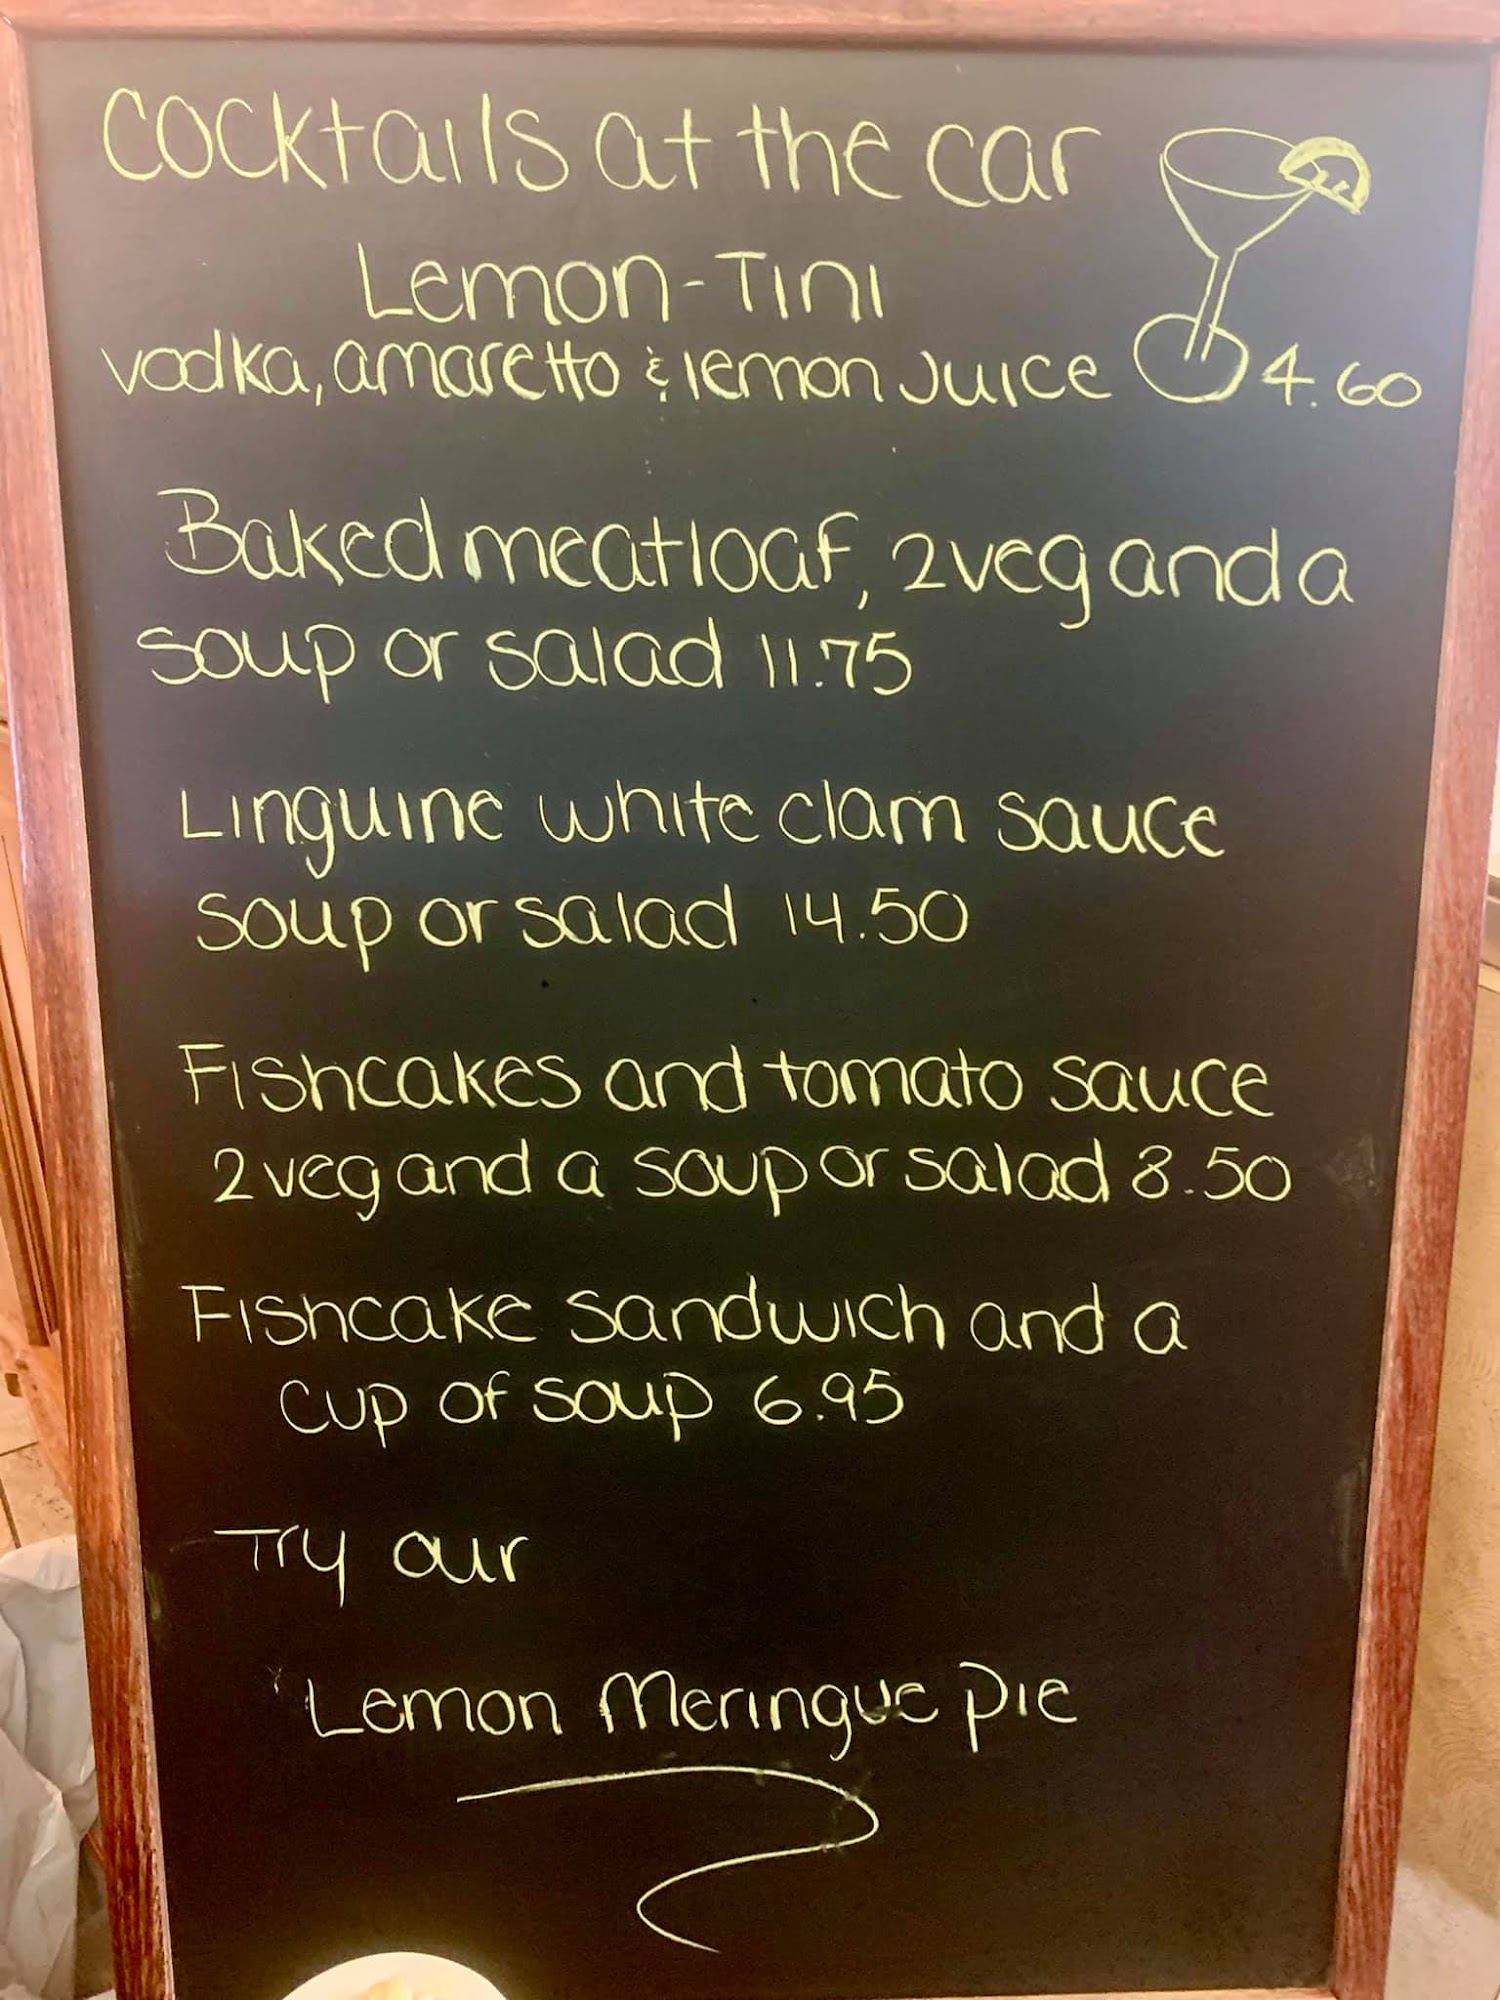 Cocktails at the car
Lemon-Tini
vodka, amaretto & lemon juice 4.60
Baked meatloaf, 2 veg and a
soup or salad 11.75
Linguine white clam sauce
soup or salad 14.50
Fishcakes and tomato sauce
2 veg and a soup or salad 8.50
Fishcake sandwich and a
cup of soup 6.95
Try our
Lemon Meringue Pie